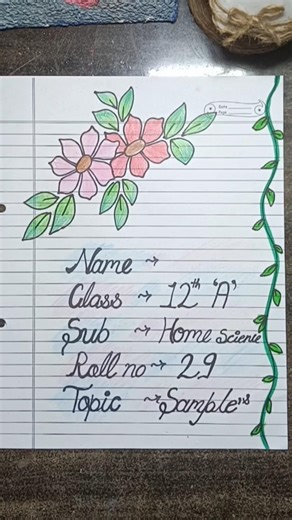 Date
Page
Name ~
Class ~ 12th 'A'
Sub ~ Home Science
Roll no ~ 29
Topic ~ Sample's